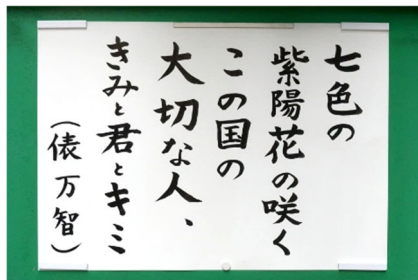 七色の
紫陽花の咲く
この国の
大切な人、
きみと君とキミ
（俵万智）